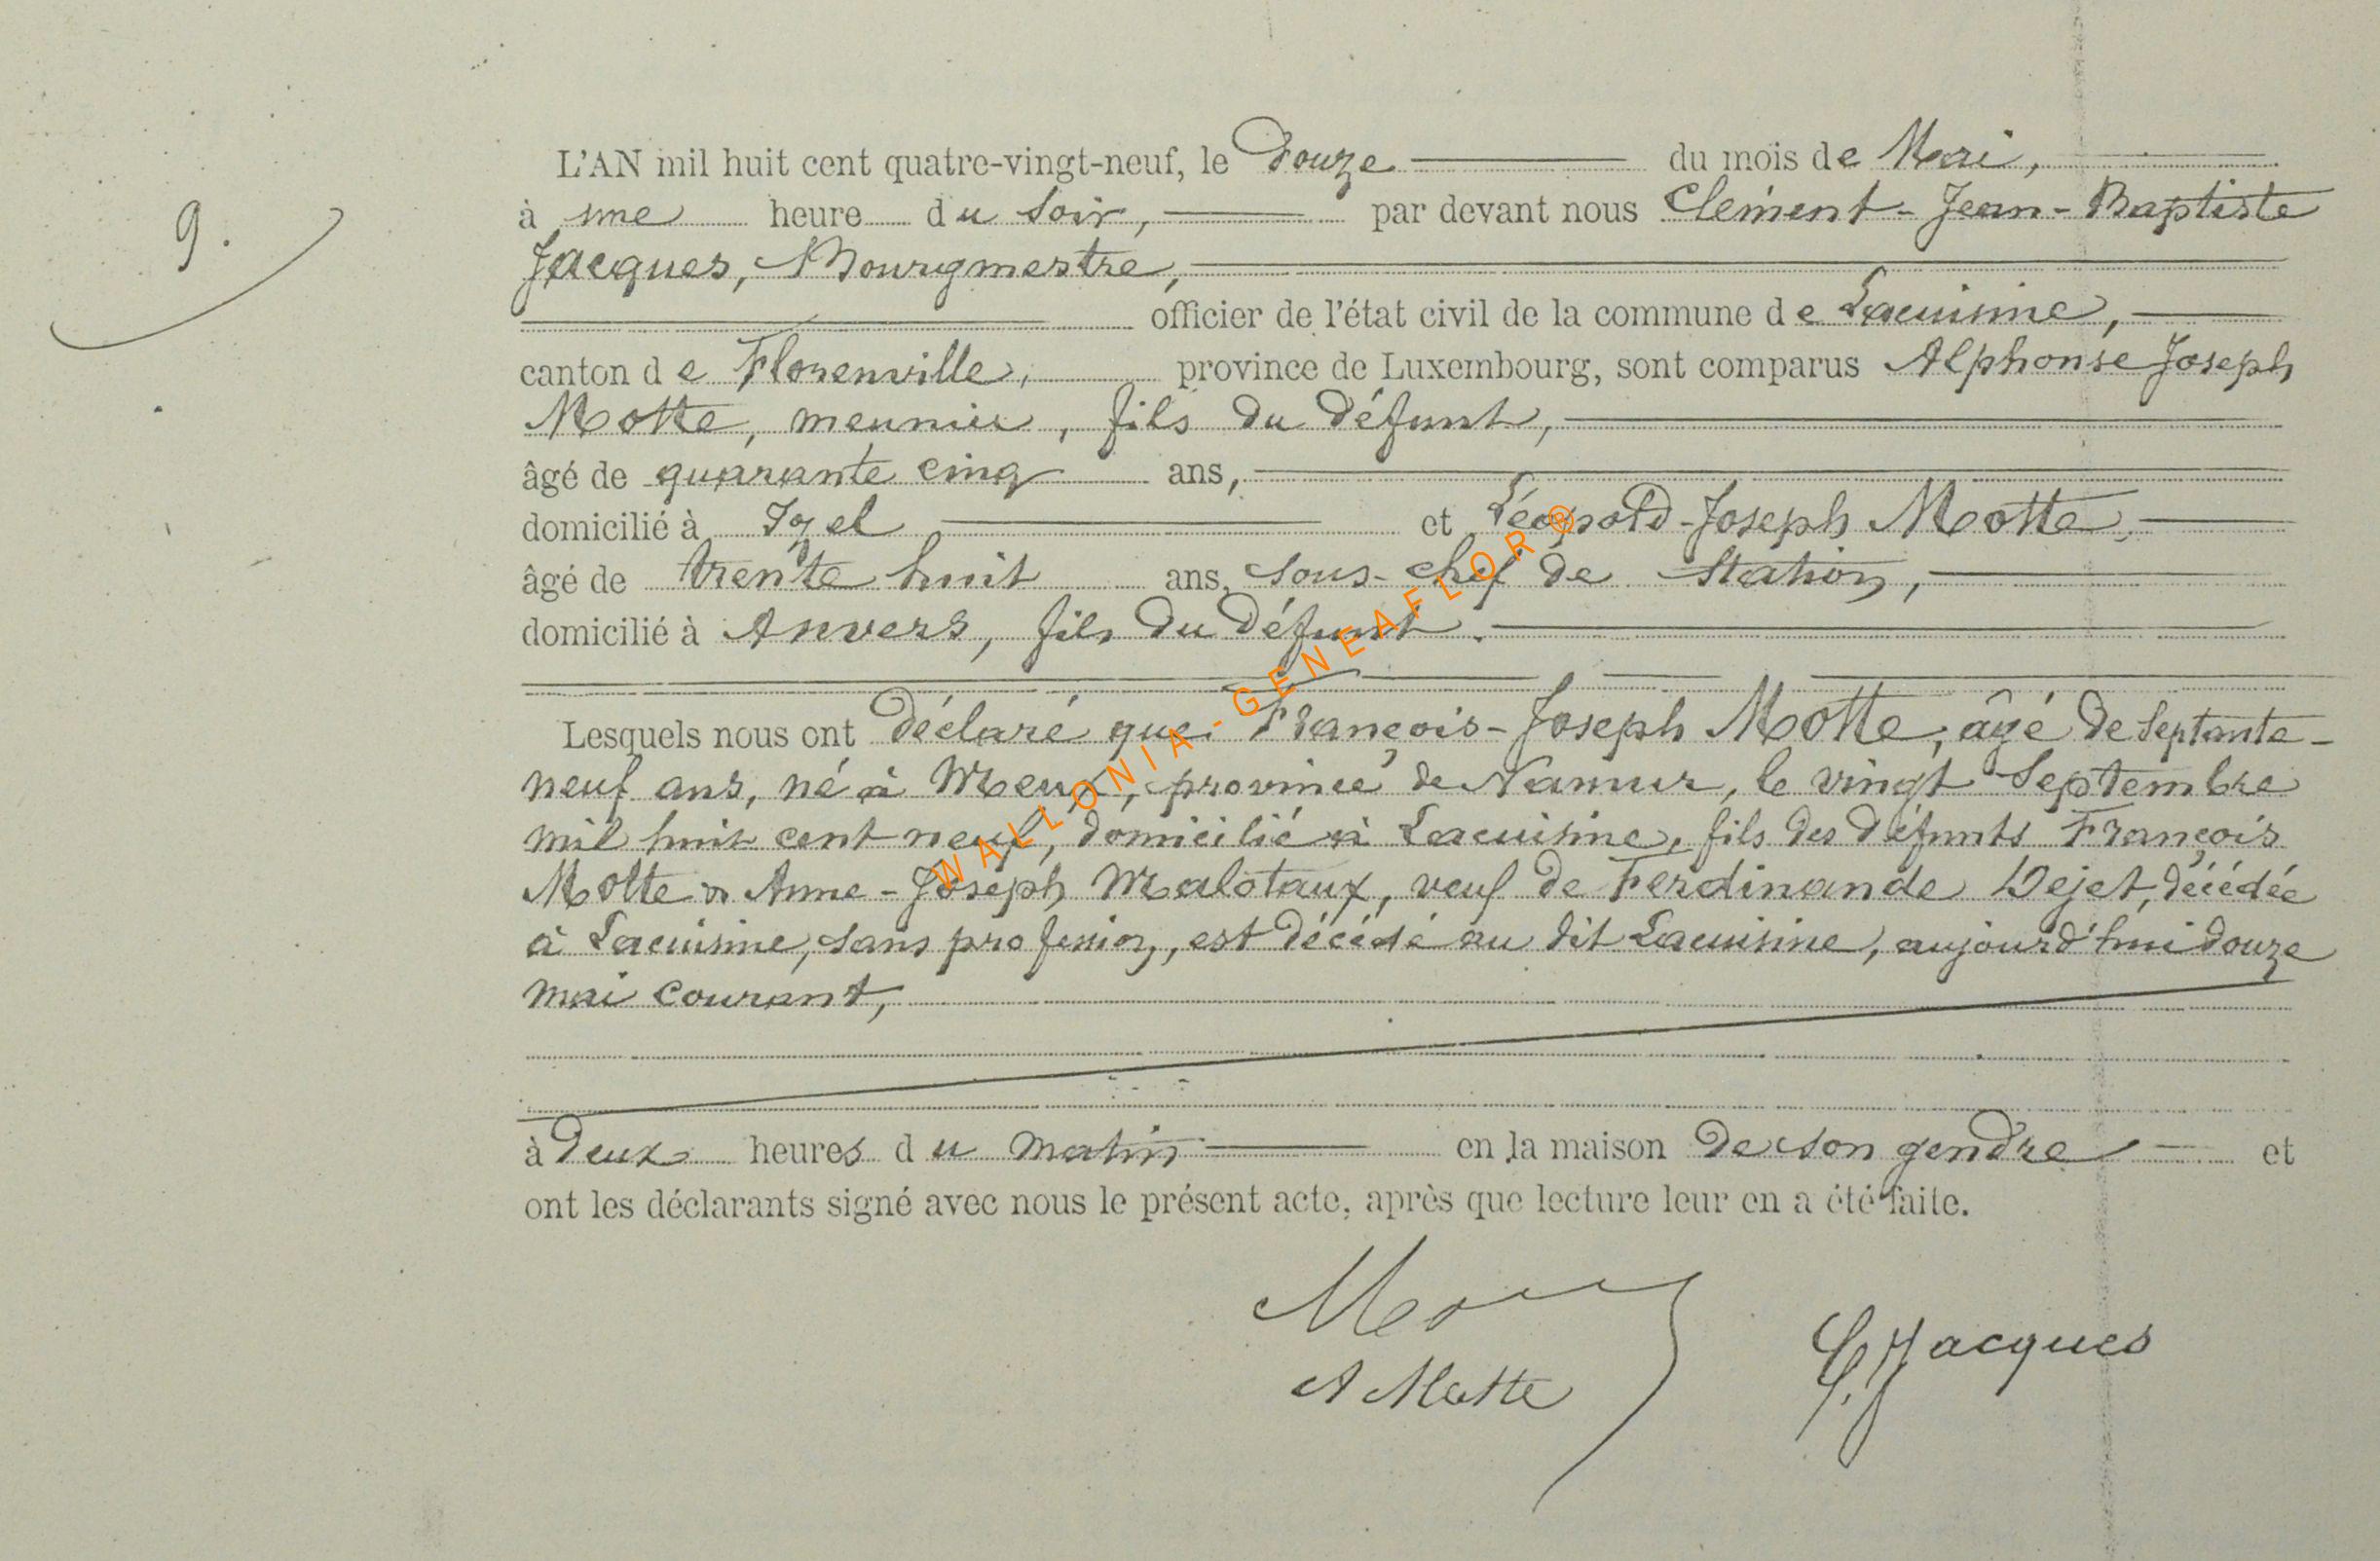 9.
L'AN mil huit cent quatre-vingt-neuf, le Douze du mois de Mai,
à une heure du soir, par devant nous Clément-Jean-Baptiste
Jacques, Bourgmestre,
officier de l'état civil de la commune de Lacuisine,
canton de Florenville, province de Luxembourg, sont comparus Alphonse Joseph
Motte, meunier, fils du défunt,
âgé de quarante cinq ans,
domicilié à Izel et Léopold-Joseph Motte,
âgé de trente huit ans, sous-chef de station,
domicilié à Anvers, fils du défunt.
Lesquels nous ont déclaré que François-Joseph Motte, âgé de septante-
neuf ans, né à Meux, province de Namur, le vingt Septembre
mil huit cent neuf, domicilié à Lacuisine, fils des défunts François
Motte & Anne-Joseph Malotaux, veuf de Ferdinande Dejet, décédée
à Lacuisine, sans profession, est décédé au dit Lacuisine, aujourd'hui douze
mai courant,
à deux heures du matin en la maison de son gendre et
ont les déclarants signé avec nous le présent acte, après que lecture leur en a été faite.
A Motte
Jacques
WALLONIA-GENEAFLOR®